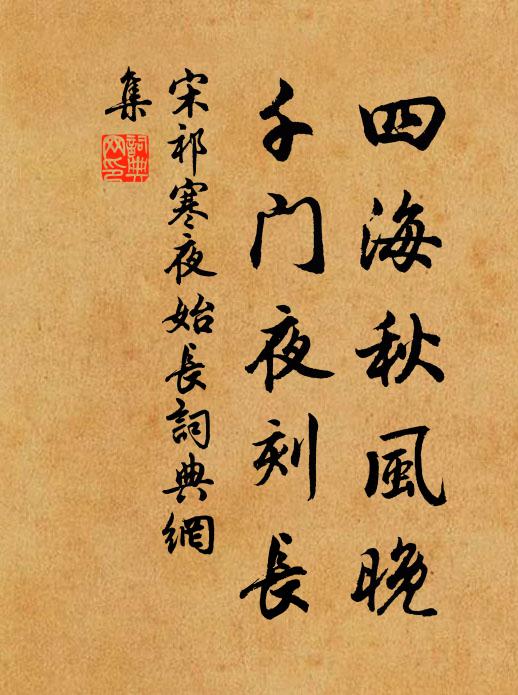 四海秋風晚
千門夜刻長
宋祁寒夜始長詞典網
集
詞典
网印